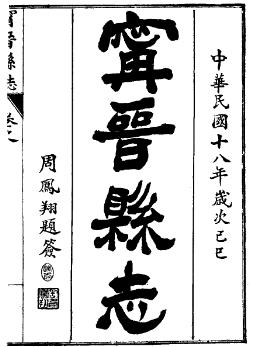 中華民國十八年歲次己巳
甯晉縣志
周鳳翔題簽
甯晉縣志